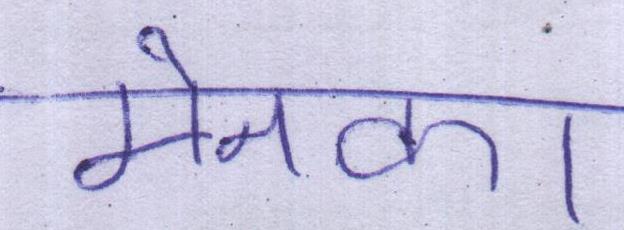 मेनका